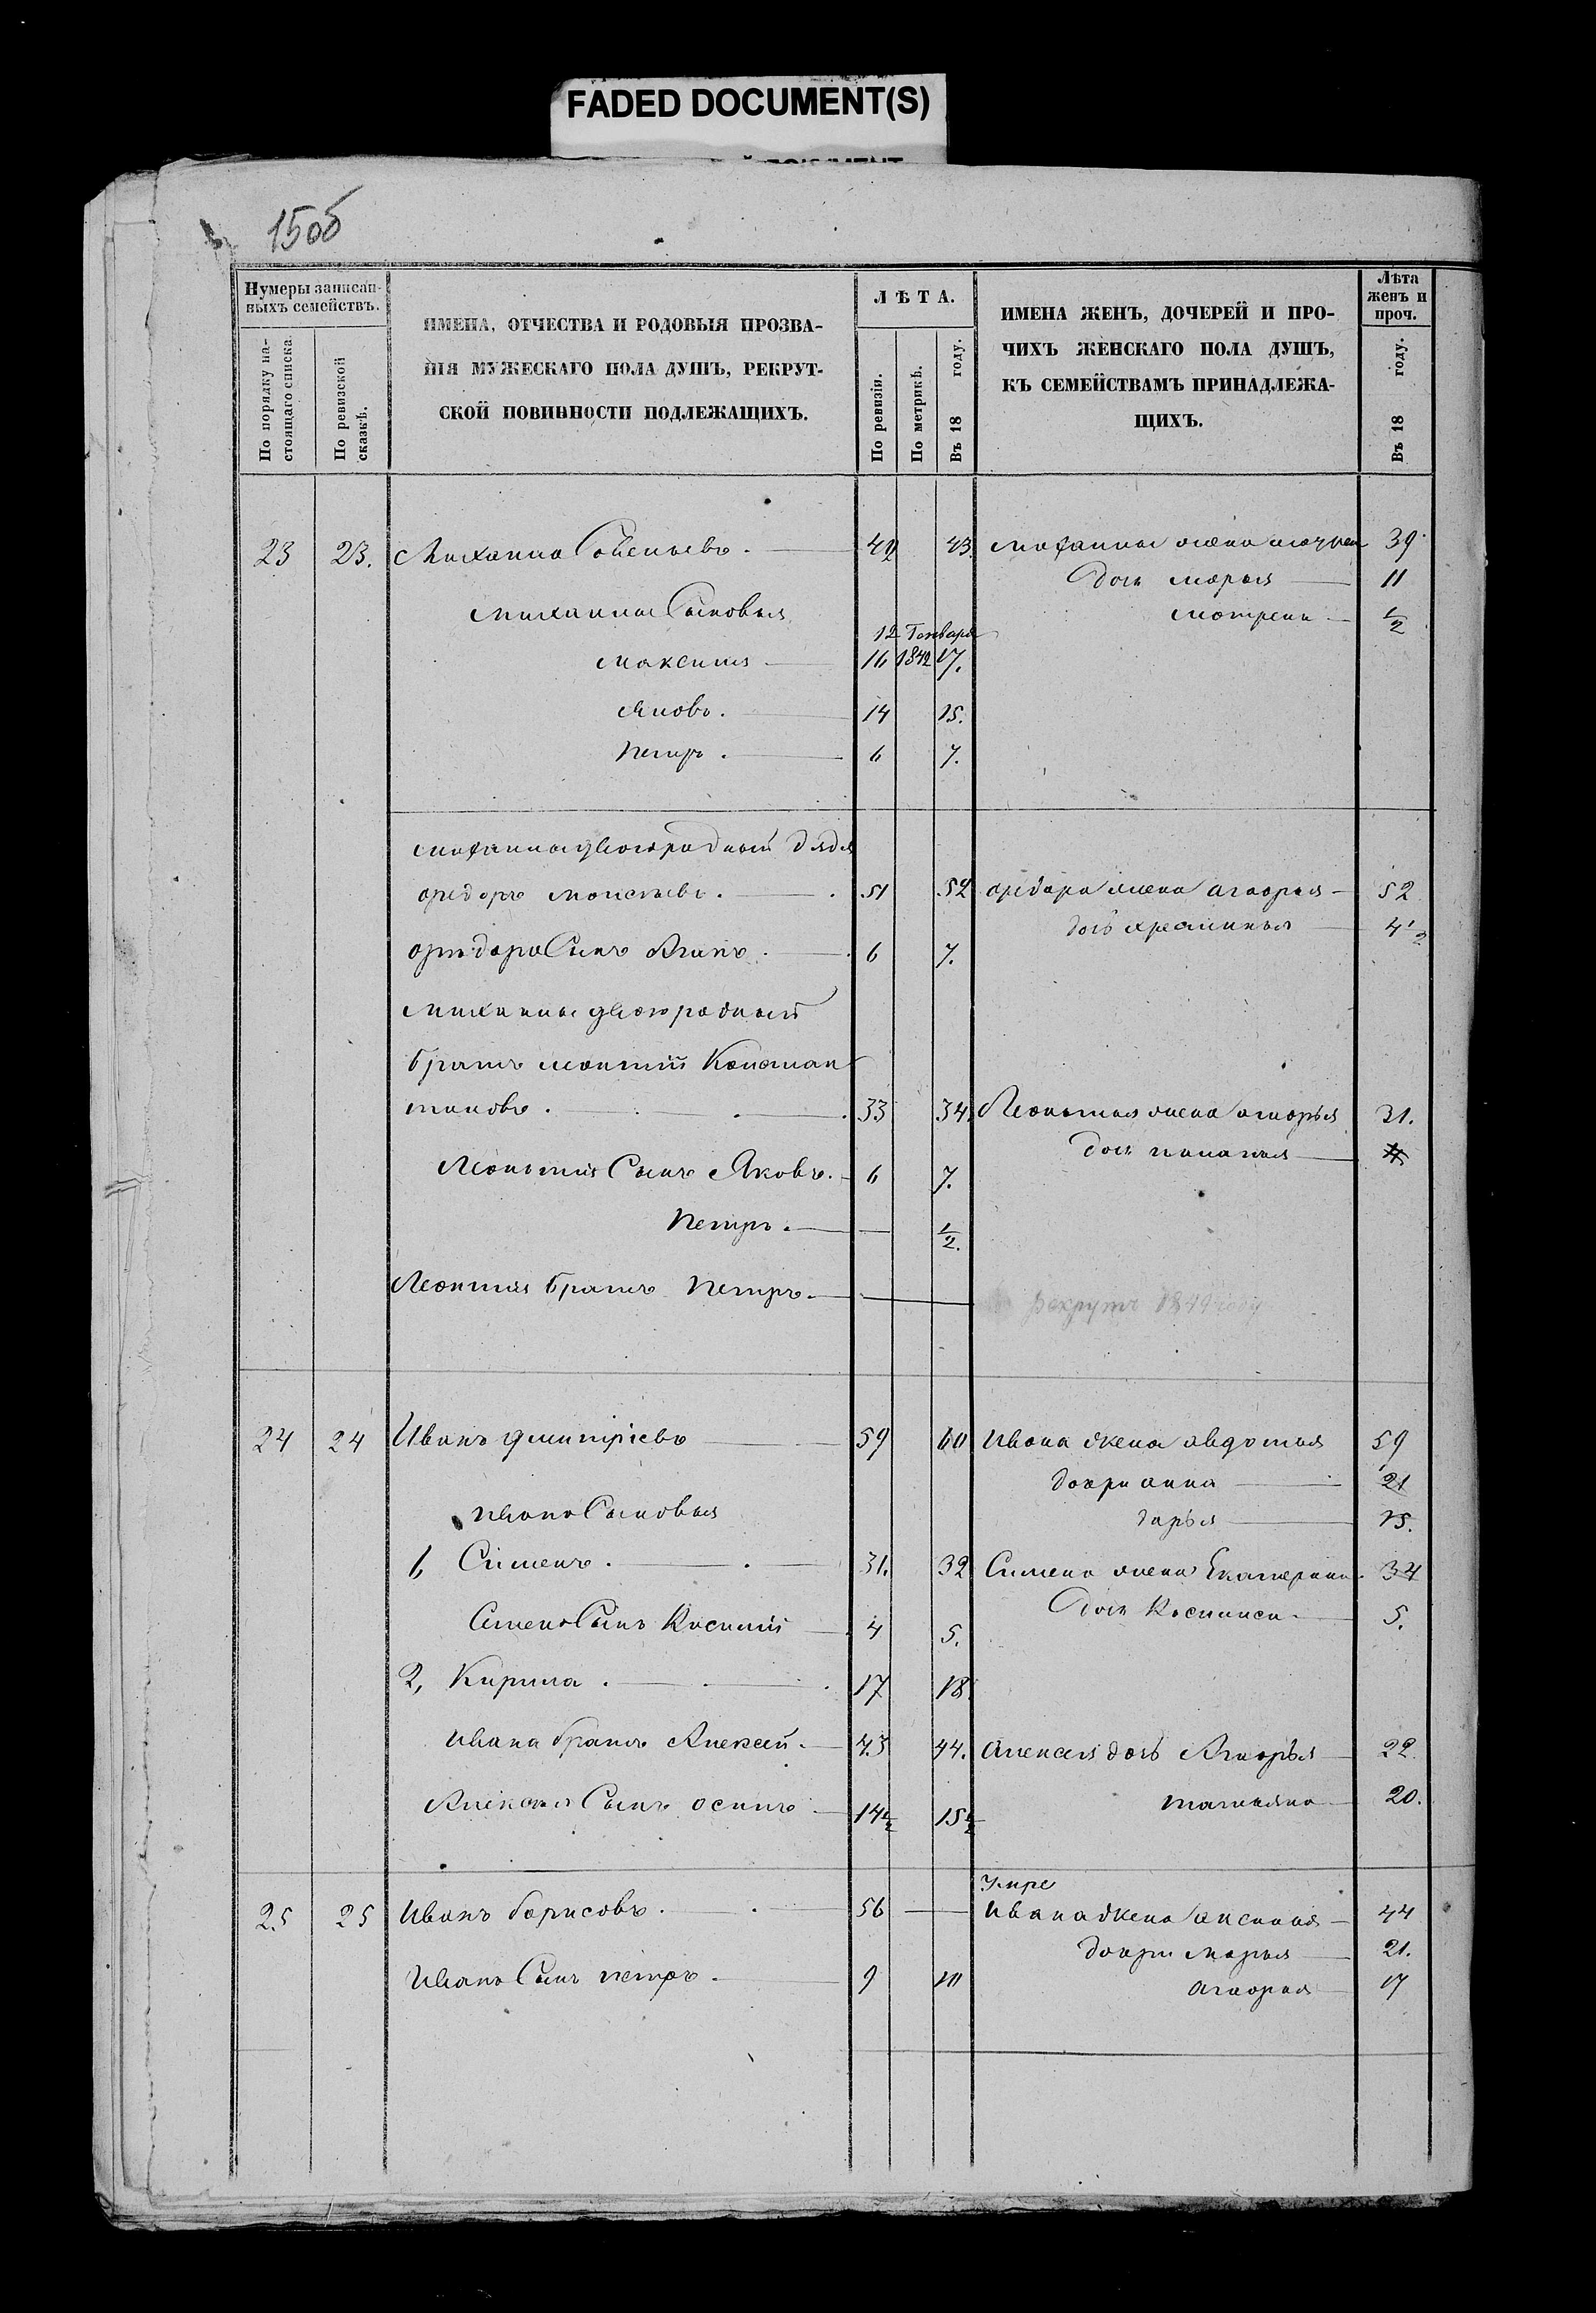 FADED DOCUMENT(S)
15об
Нумеры записан-
ныхъ семействъ.
По порядку на-
стоящаго списка.
По ревизской
сказкѣ.
ИМЕНА, ОТЧЕСТВА И РОДОВЫЯ ПРОЗВА-
НІЯ МУЖЕСКАГО ПОЛА ДУШЪ, РЕКРУТ-
СКОЙ ПОВИННОСТИ ПОДЛЕЖАЩИХЪ.
ЛѢТА.
По ревизіи.
По метрикѣ.
Въ 18 году.
ИМЕНА ЖЕНЪ, ДОЧЕРЕЙ И ПРО-
ЧИХЪ ЖЕНСКАГО ПОЛА ДУШЪ,
КЪ СЕМЕЙСТВАМЪ ПРИНАДЛЕЖА-
ЩИХЪ.
Лѣта
женъ и
проч.
Въ 18 году.
23 23. Михаила 42 43 михаила жена 39
дочь марья 11
Михаила Сыновья матрена 1/2
12 Генваря
максимъ 16 1842 17.
Яковъ. 14 15.
петръ. 6 7.
михаила двоюродный дядя
фидоръ моисѣевъ. 51 52 фидора жена агафья 52
дочь 4 1/2
фидора Сынъ Агапъ. 6 7.
михаила двоюродный
братъ леонтій Констан
тиновъ. 33 34. Леонтья жена марья 31.
дочь
Леонтия Сынъ Яковъ. 6 7.
Петръ. 1/2.
Леонтия братъ Петръ. Рекрутъ 1849 году
24 24 Иванъ дмитріевъ 59 60 Ивана жена авдотья 59
дочери анна 21
Ивана Сыновья дарья 15.
1, Сименъ. 31. 32 Симена жена Екатерина. 34
Симена Сынъ 4 5. дочь 5.
2, Кирила. 17 18.
Ивана братъ Алексей. 43 44. Алексея дочь Агафья 22.
Алексея Сынъ осипъ 14 1/2 15 1/2 татьяна 20.
Умре
25 25 Иванъ борисовъ. 56 Ивана жена аксинья 44
дочери марья 21.
Ивана Сынъ петръ. 9 10 агафья 17